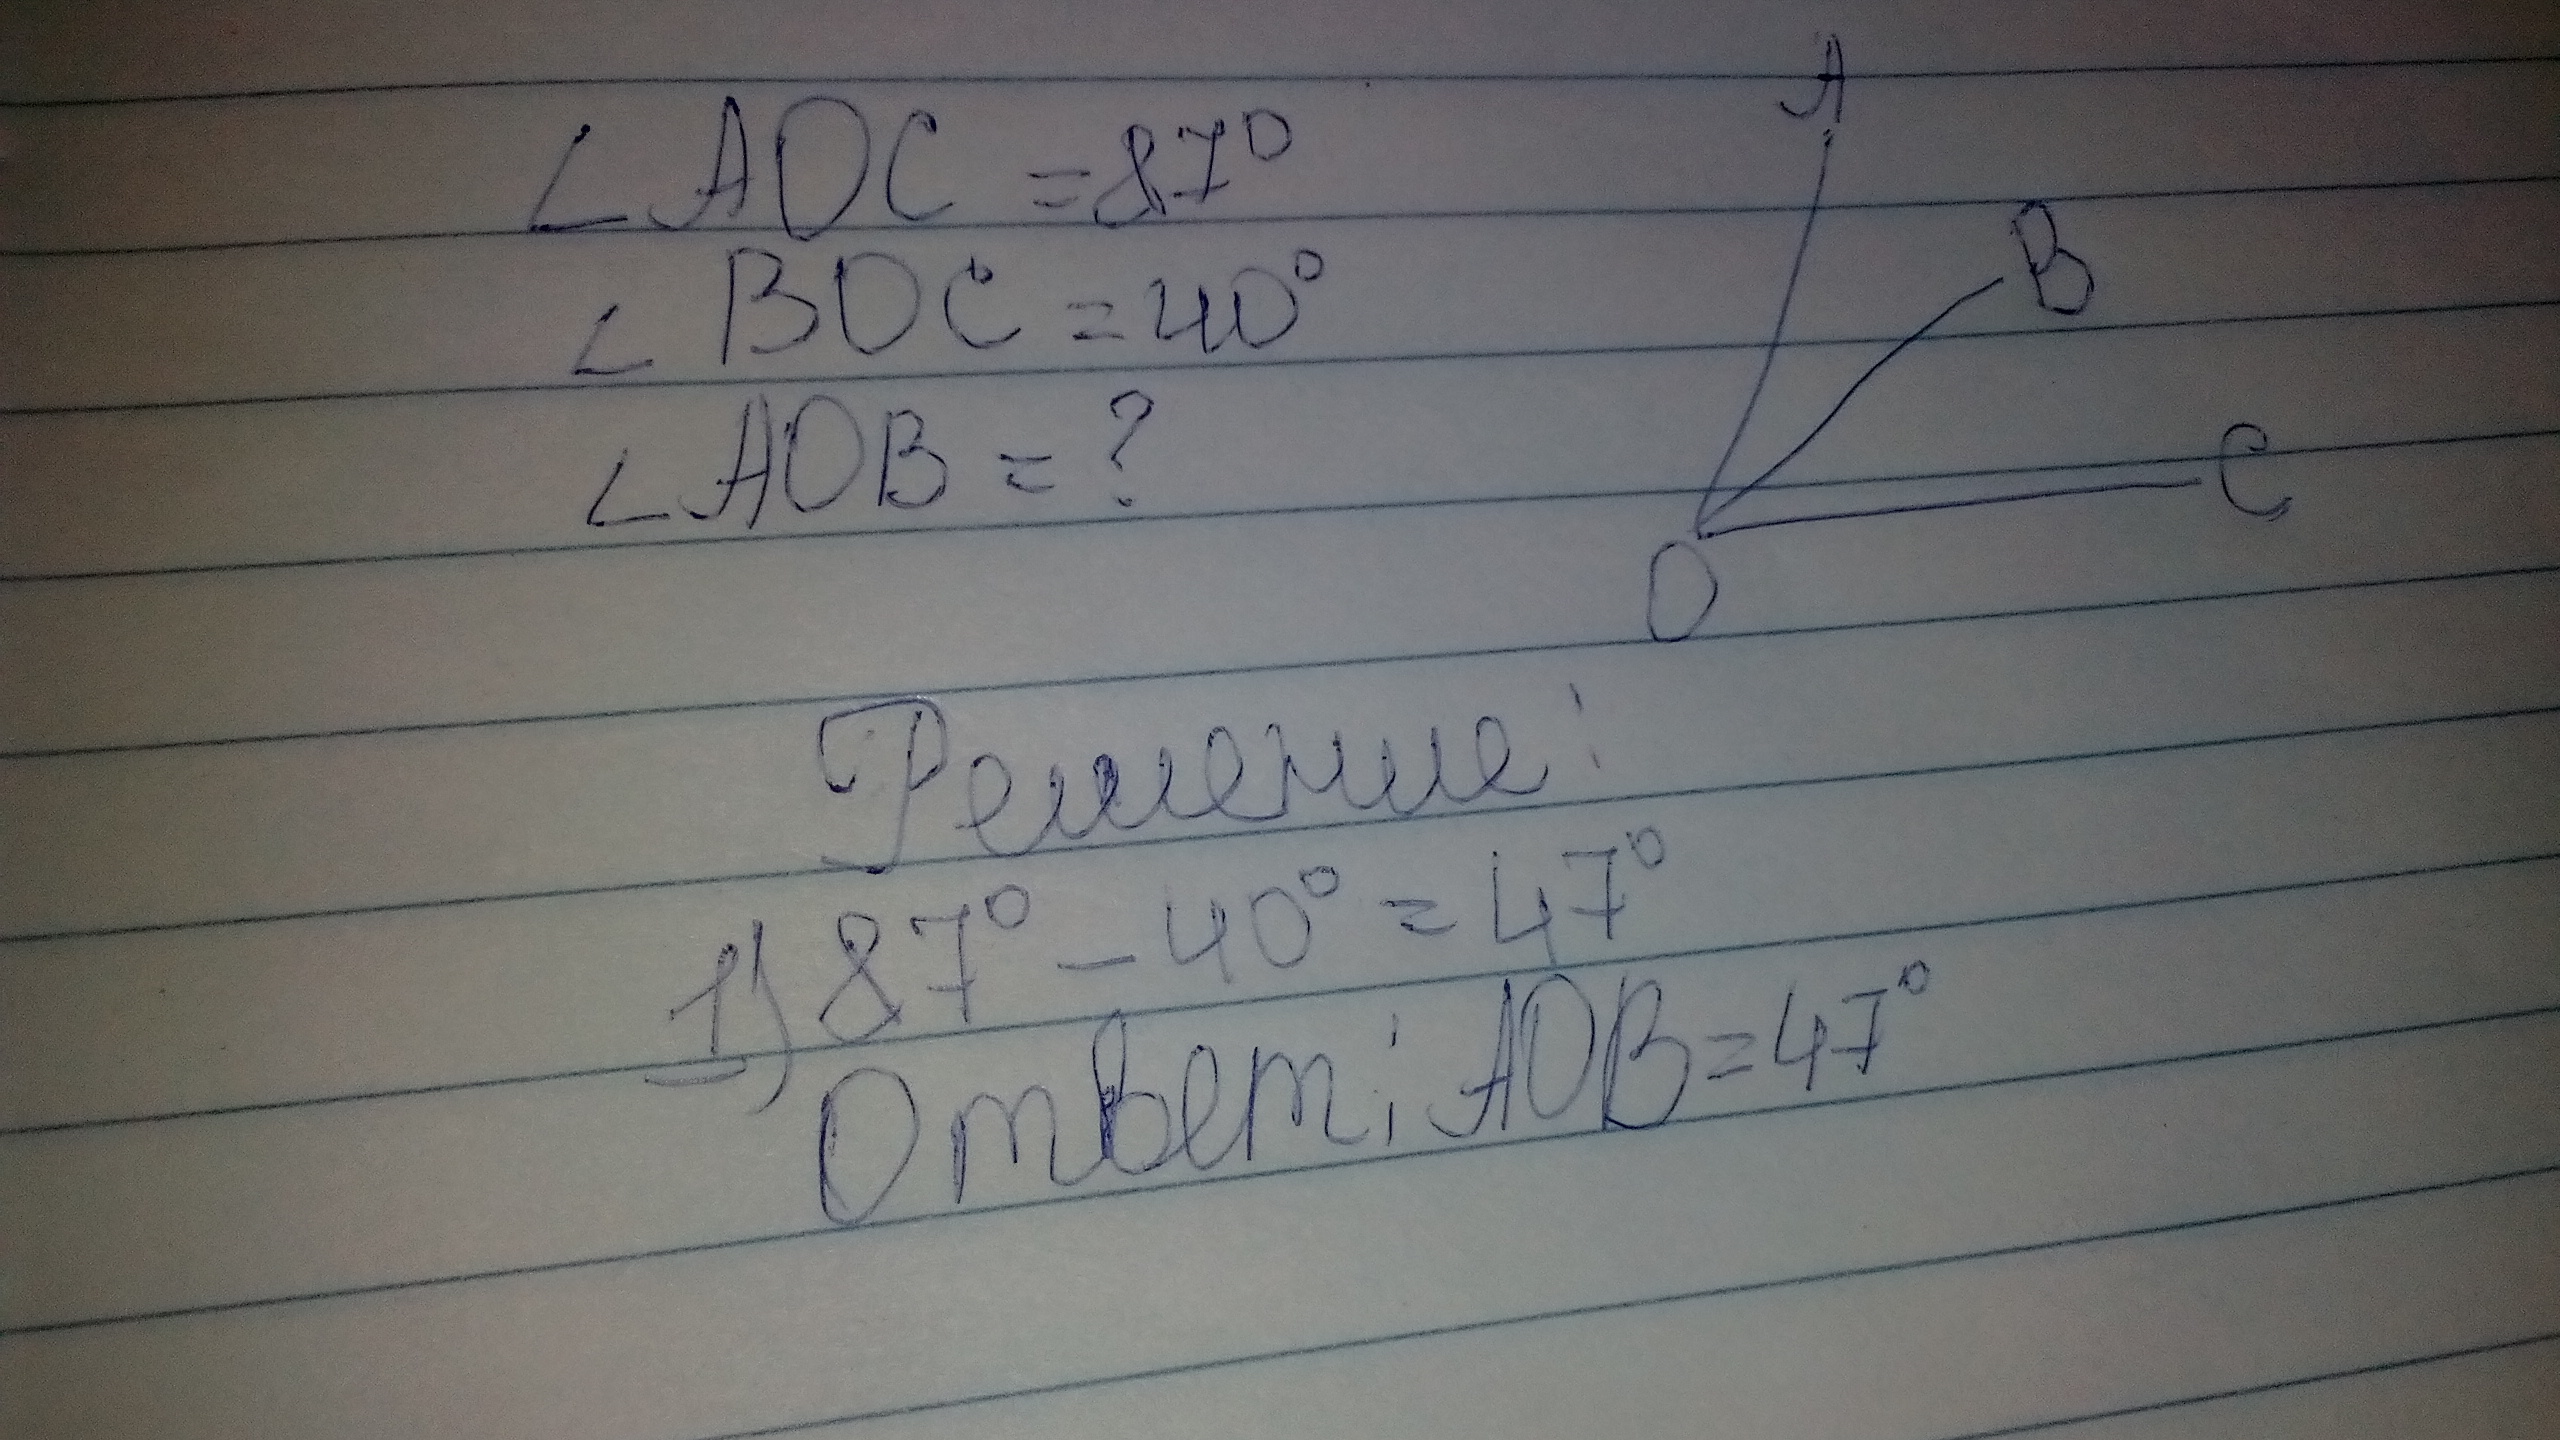 ∠AOC = 87°
∠BOC = 40°
∠AOB = ?
A
B
C
O
Решение:
1) 87° - 40° = 47°
Ответ: AOB = 47°